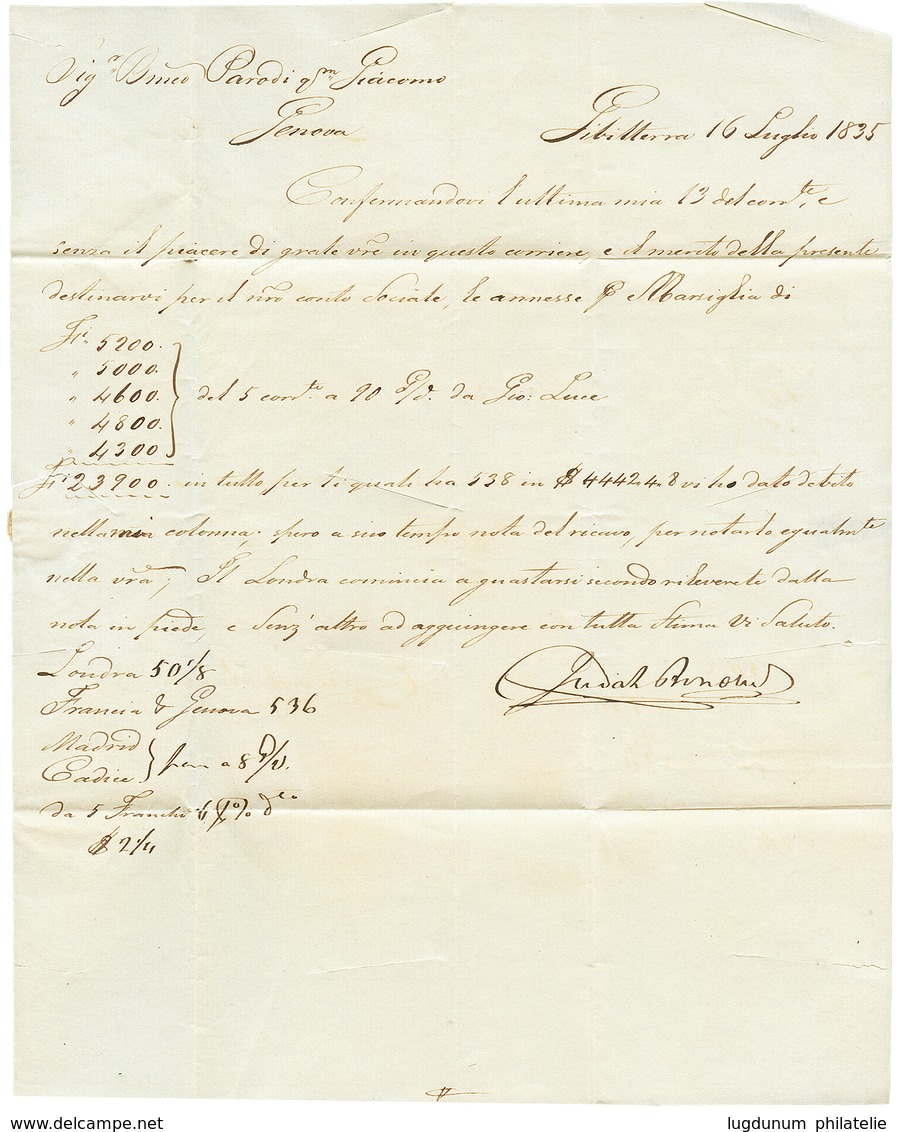 Sig.r Bmeo Parodi qm Giacomo
Genova
Gibilterra 16 Luglio 1835
Confermandovi l'ultima mia 13 del corrte, e
senza il piacere di grate vre in questo corriere, e il merito della presente
destinarvi per il nro conto Sociale, le annesse p Marsiglia di
Fi. 5200.
" 5000.
" 4600.
" 4800.
" 4300
del 5 corrte a 90 d/d. da Gio: Luce
Fi 23900. in tutto per li quali ha 538 in $ 4442.4.8 vi ho dato debito
nella mia colonna. spero a suo tempo nota del ricavo, per notarlo egualmte
nella vra; Il Londra comincia a guastarsi secondo rileverete dalla
nota in piede, e Senz'altro ad aggiungere con tutta Stima Vi Saluto.
Judah
Londra 50 1/8
Francia & Genova 536
Madrid
Cadice
pari a 8 d/v.
da 5 Franchi
$ 2 1/4
www.delcampe.net
lugdunum philatelie